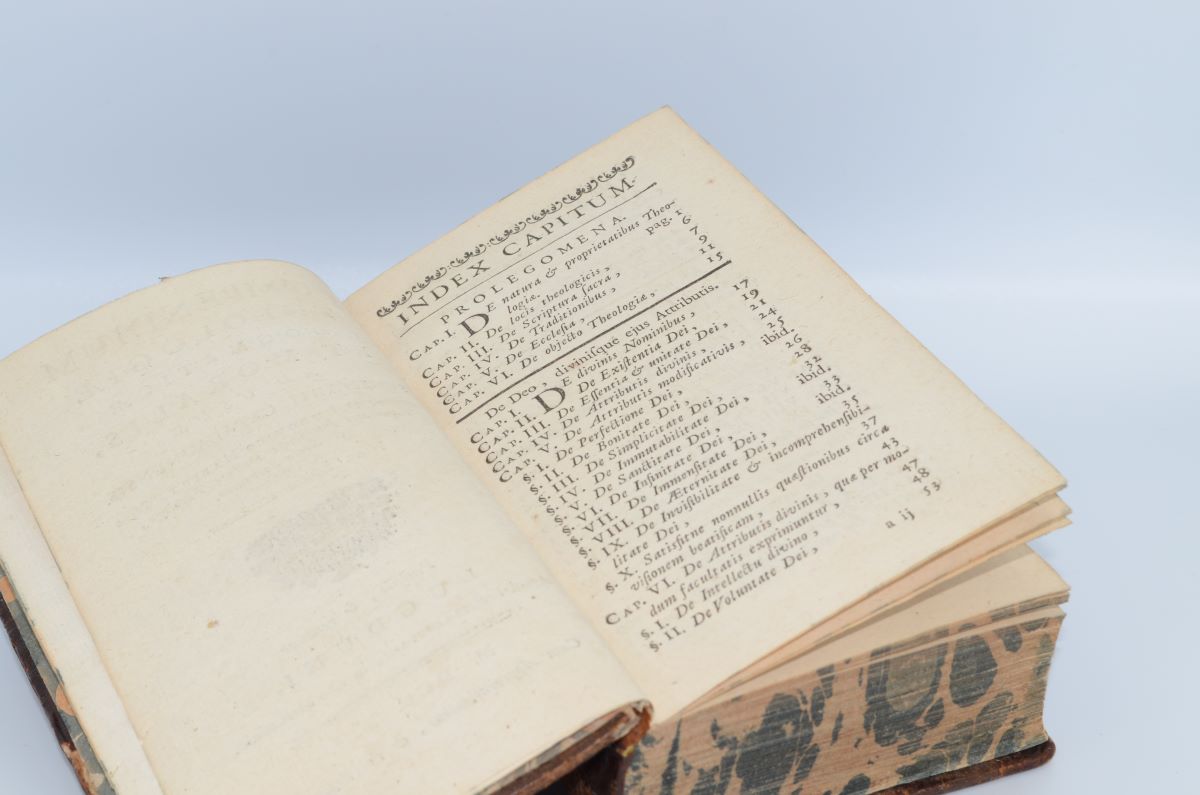 INDEX CAPITUM.
PROLEGOMENA.
CAP. I. DE natura & proprietatibus Theo-
logiæ. pag. 1
CAP. II. De locis theologicis, 6
CAP. III. De Scriptura ſacra, 7
CAP. IV. De Traditionibus, 9
CAP. V. De Eccleſia, 11
CAP. VI. De objecto Theologiæ, 15
De Deo, diviniſque ejus Attributis.
CAP. I. DE divinis Nominibus, 17
CAP. II. De Exiſtentia Dei, 19
CAP. III. De Eſſentia & unitate Dei, 21
CAP. IV. De Attributis divinis, 24
CAP. V. De Attributis modificativis, 25
§. I. De Perfectione Dei, ibid.
§. II. De Bonitate Dei, 26
§. III. De Simplicitate Dei, 28
§. IV. De Immutabilitate Dei, 32
§. V. De Sanctitate Dei, ibid.
§. VI. De Infinitate Dei, 33
§. VII. De Immenſitate Dei, ibid.
§. VIII. De Æternitate Dei, 35
§. IX. De Inviſibilitate & incomprehenſibi-
litate Dei, 37
§. X. Satisfitne nonnullis quæſtionibus circa
viſionem beatificam, 43
CAP. VI. De Attributis divinis, quæ per mo-
dum facultatis exprimuntur, 47
§. I. De Intellectu divino, 48
§. II. De Voluntate Dei, 53
a ij